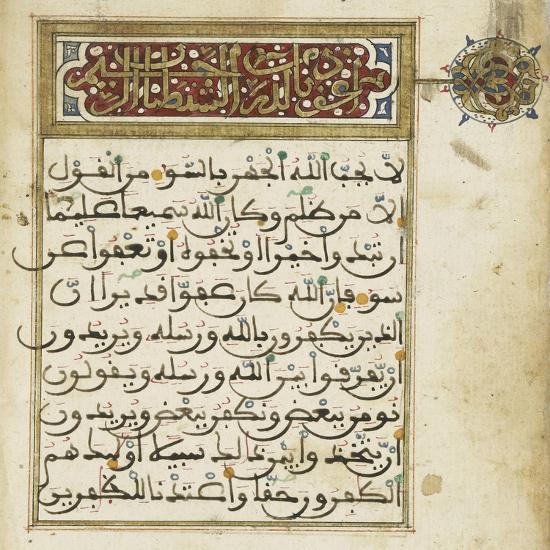 اعوذ بالله من الشيطان الرجيم
لا يحب الله الجهر بالسوء من القول
الا من ظلم وكان الله سميعا عليما
ان تبدوا خيرا او تخفوه او تعفوا عن
سوء فان الله كان عفوا قديرا ان
الذين يكفرون بالله ورسله ويريدون
ان يفرقوا بين الله ورسله ويقولون
نومن ببعض ونكفر ببعض ويريدون
ان يتخذوا بين ذلك سبيلا اولئك هم
الكفرون حقا واعتدنا للكفرين